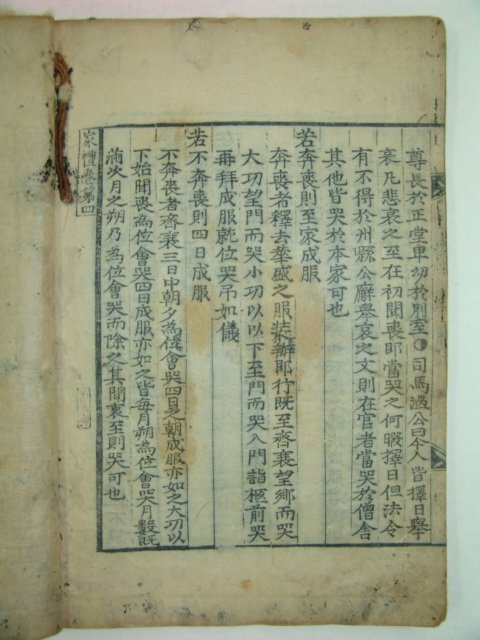 尊長於正堂卑幼於別室○司馬溫公曰今人皆擇日舉
哀凡悲哀之至在初聞喪即當哭之何暇擇日但法令
有不得於州縣公廨舉哀之文則在官者當哭於僧舍
其他皆哭於本家可也
若奔喪則至家成服
奔喪者釋去華盛之服裝辦即行既至齊衰望鄉而哭
大功望門而哭小功以下至門而哭入門詣柩前哭
再拜成服就位哭吊如儀
若不奔喪則四日成服
不奔喪者齊衰三日中朝夕爲位會哭四日之朝成服亦如之大功以
下始聞喪爲位會哭四日成服亦如之皆每月朔爲位會哭月數既
滿次月之朔乃爲位會哭而除之其間哀至則哭可也
家禮卷第四